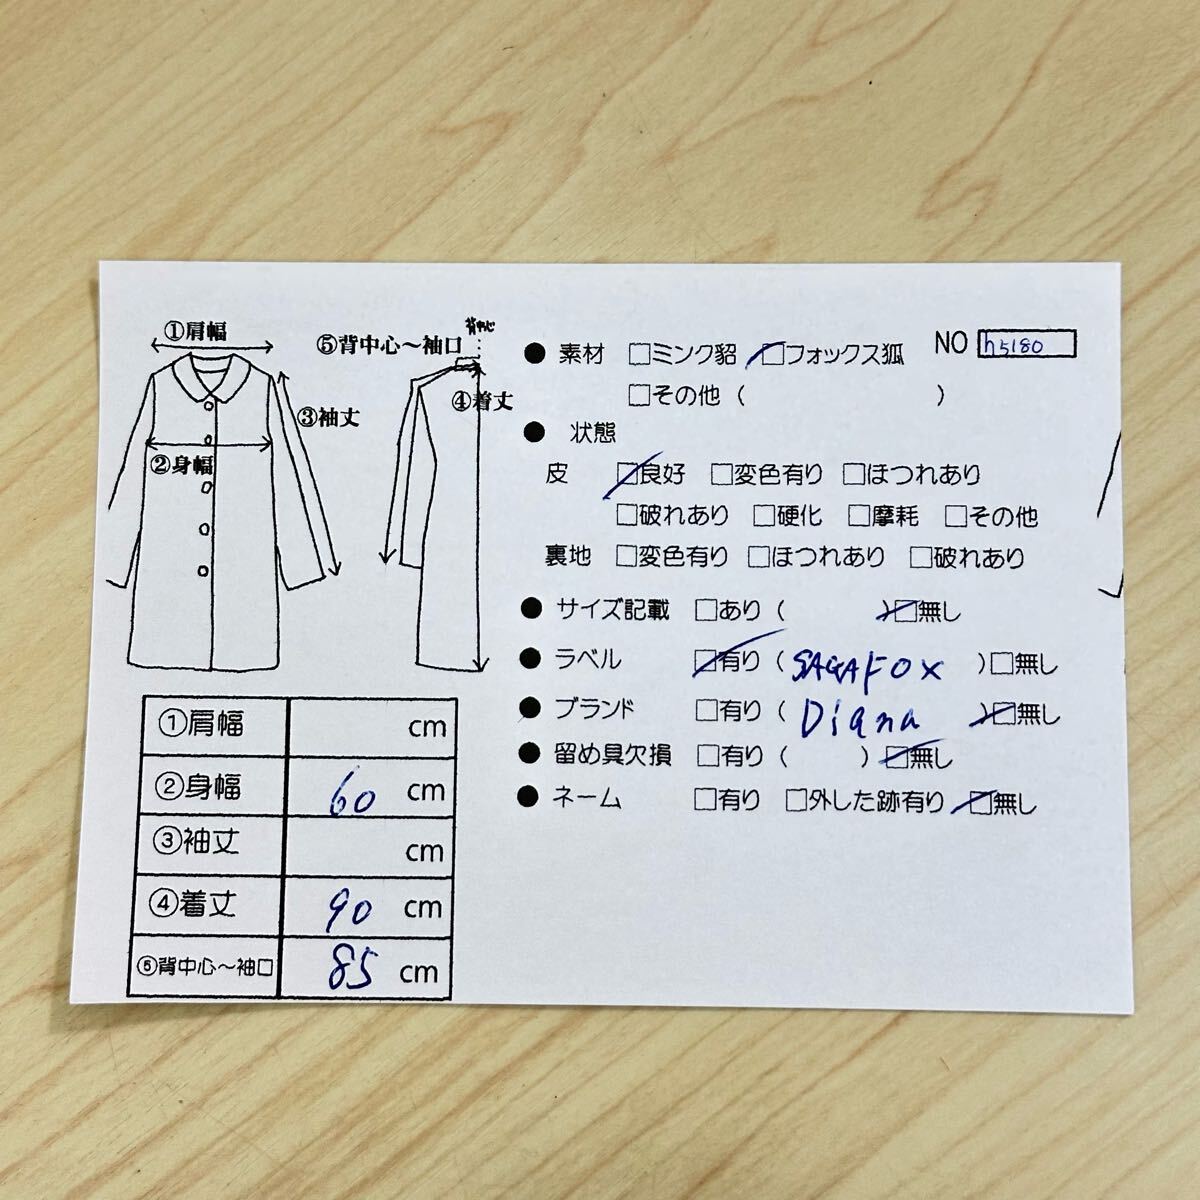 ①肩幅
⑤背中心～袖口
背中心
③袖丈
④着丈
②身幅
NO h5180
● 素材 □ミンク貂 □フォックス狐
□その他（ ）
● 状態
皮 □良好 □変色有り □ほつれあり
□破れあり □硬化 □摩耗 □その他
裏地 □変色有り □ほつれあり □破れあり
● サイズ記載 □あり（ ）□無し
● ラベル □有り（SAGAFOX）□無し
● ブランド □有り（Diana）□無し
● 留め具欠損 □有り（ ）□無し
● ネーム □有り □外した跡有り □無し
①肩幅 cm
②身幅 60 cm
③袖丈 cm
④着丈 90 cm
⑤背中心～袖口 85 cm